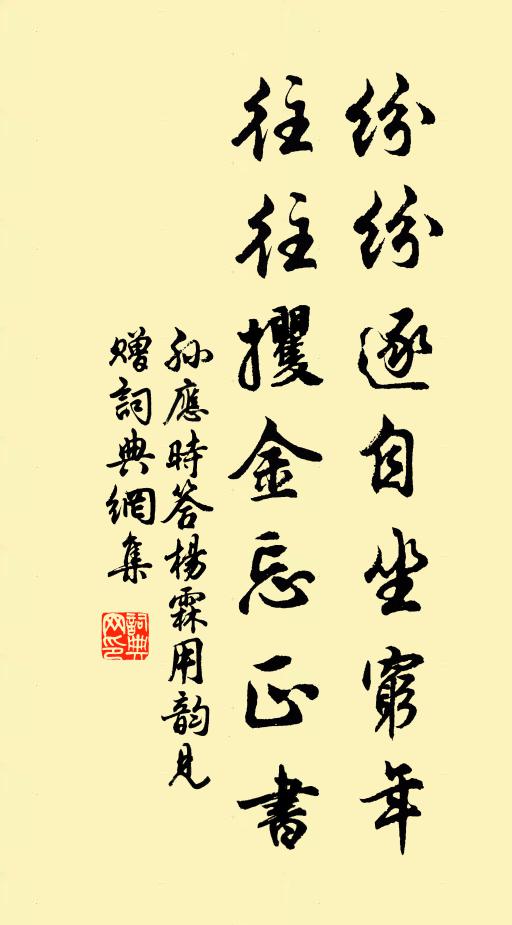 紛紛逐自坐窮年
往往攫金忘正書
孫應時答楊霖用韵見
贈詞典網集
詞典网印